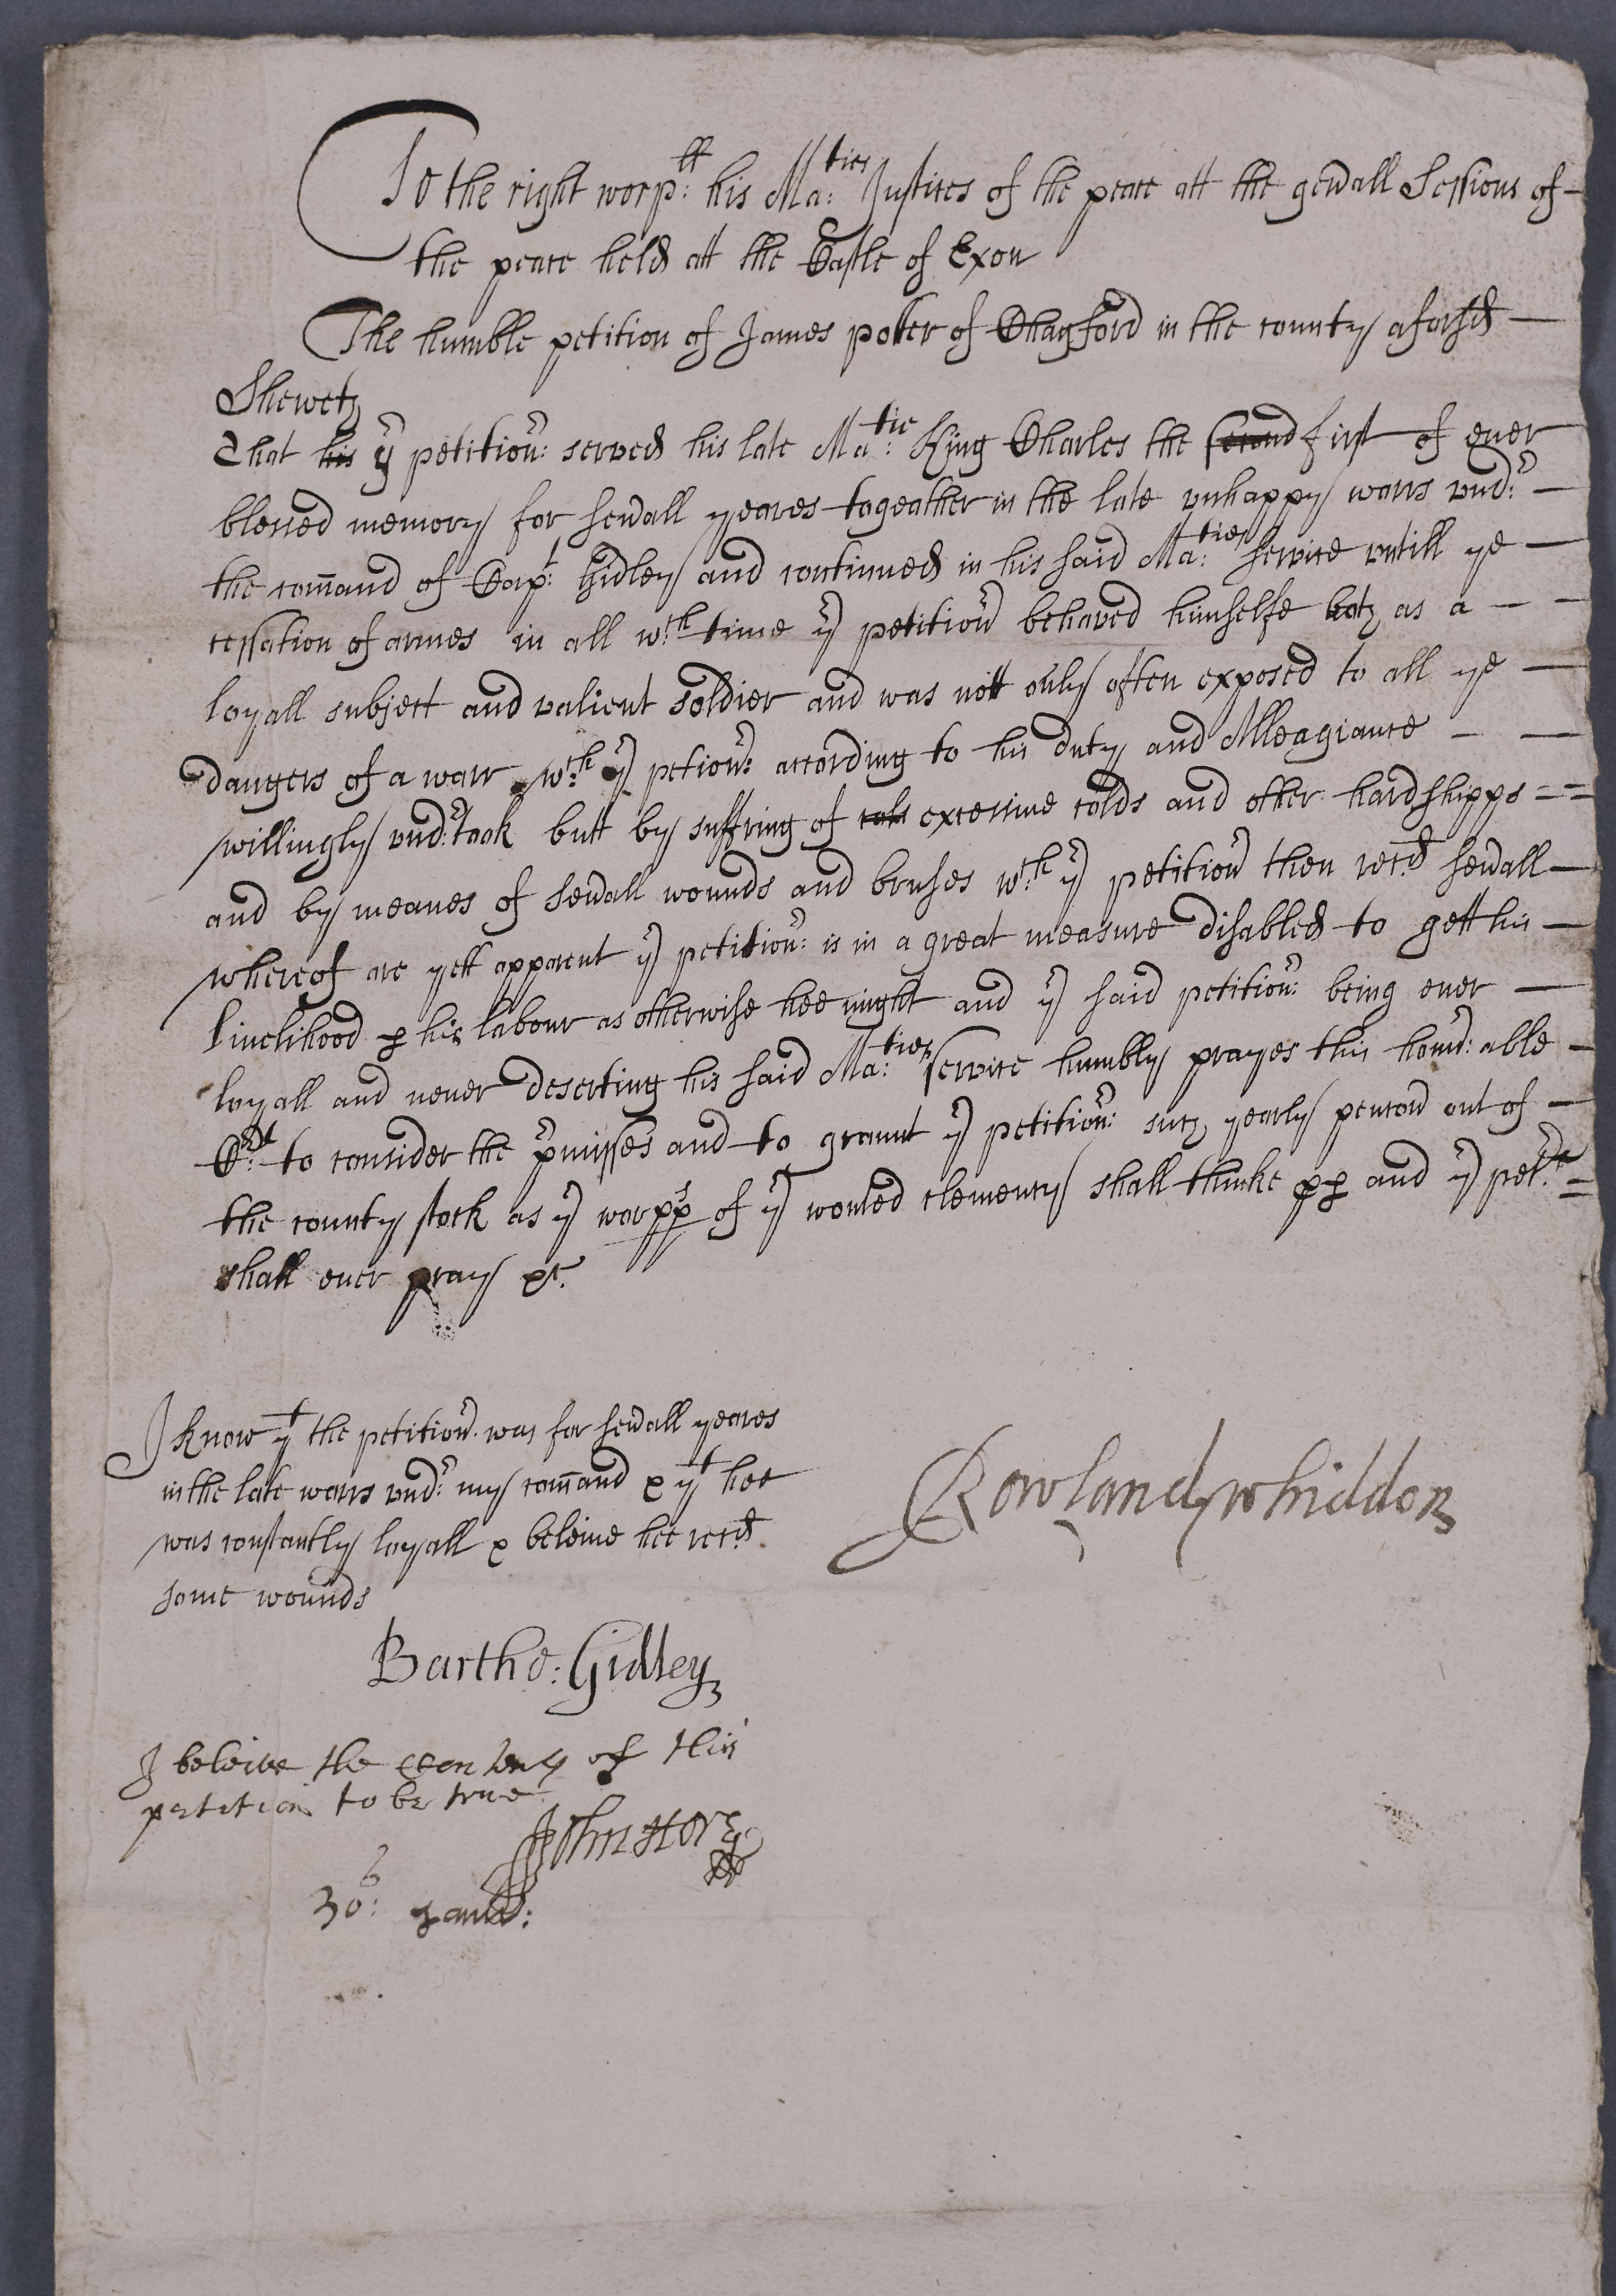 To the right worp:ll his Ma:ties Justices of the peace att the gen'all Sessions of
the peace held att the Castle of Exon
The humble petition of James potter of Chagford in the county aforsd
Sheweth
That his yr petition'r: served his late Ma:tie King Charles the second first of ever
blessed memory for sev'all yeares togeather in the late unhappy warrs und:r
the com̄and of Cap:t Gidley and continued in his said Ma:ties service untill ye
cessation of armes in all w:ch time yr petition'r behaved himselfe both as a
loyall subject and valient soldier and was nott only often exposed to all ye
dangers of a warr w:ch yr petion'r: according to his duty and Alleagiance
willingly und:rtook butt by suffring of cold excessive colds and other hardshipps
and by meanes of sev'all wounds and bruses w:ch yr petition'r then rec:d sev'all
whereof are yett apparent yr petition'r: is in a great measure disabled to gett his
livelihood p his labour as otherwise hee might and yr said petition'r: being ever
loyall and never deserting his said Ma:ties service humbly prayes this hono'r:able
C:rt to consider the p'misses and to graunt yr petition'r: such yearly pencon out of
the county stock as yr worpps of yr wonted clemency shall thinke pp and yr pet:r
shall ever pray &c.
I know yt the petition'r. was for sev'all yeares
in the late warrs und:r my com̄and & yt hee
was constantly loyall & beleive hee rec:d
some wounds
Rowland whiddon
Bartho: Gidley
I beleive the contents of this
petition to be true
John Hore
30:s